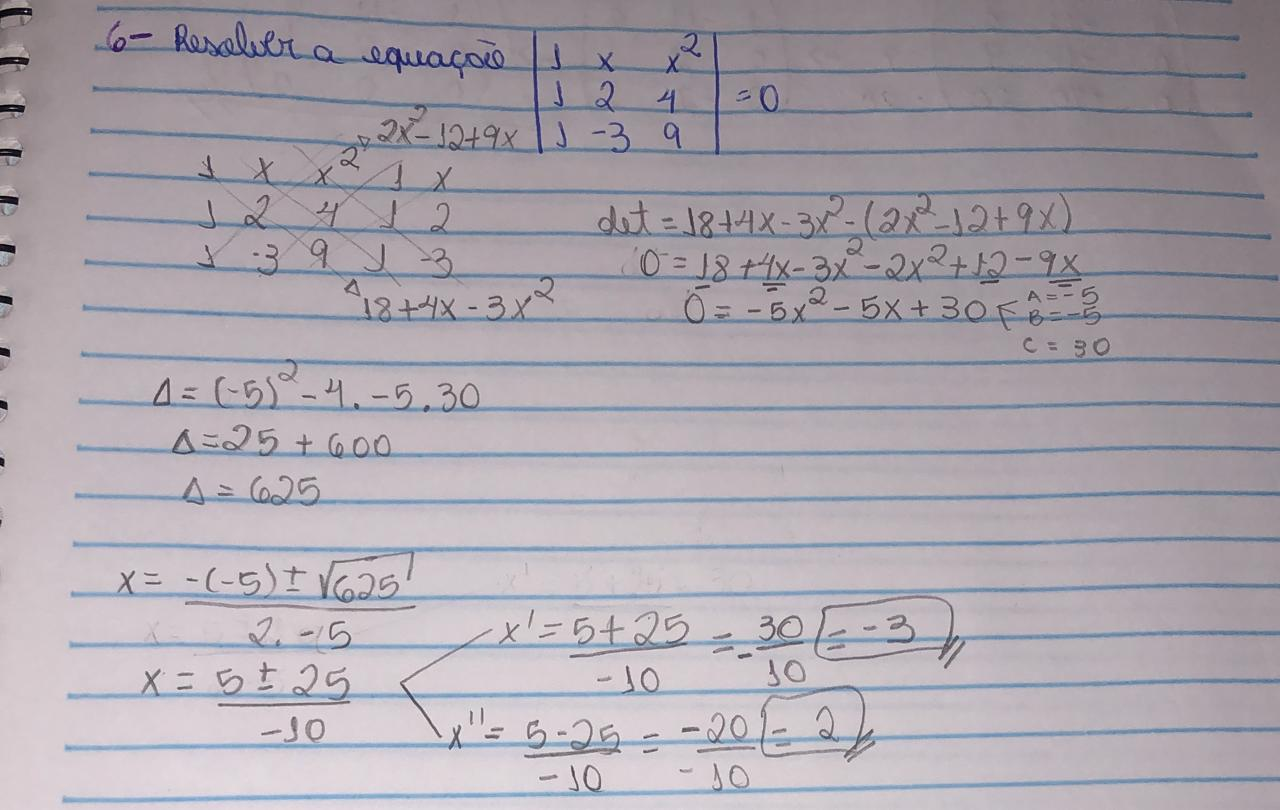 6- Resolver a equação | 1 x x² |
| 1 2 4 | = 0
| 1 -3 9 |
2x² - 12 + 9x
1 x x² 1 x
1 2 4 1 2
1 -3 9 1 -3
18 + 4x - 3x²
det = 18 + 4x - 3x² - (2x² - 12 + 9x)
0 = 18 + 4x - 3x² - 2x² + 12 - 9x
0 = -5x² - 5x + 30
A = -5
B = -5
C = 30
Δ = (-5)² - 4 . -5 . 30
Δ = 25 + 600
Δ = 625
x = -(-5) ± √625 / 2 . -5
x = 5 ± 25 / -10
x' = 5 + 25 / -10 = - 30 / 10 = -3
x'' = 5 - 25 / -10 = -20 / -10 = 2